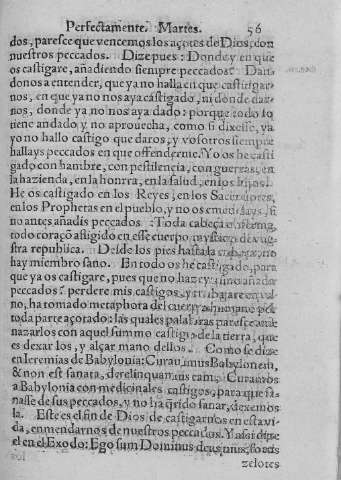 Perfectamente. Martes. 56
dos, paresce que vencemos los açotes de Dios, con
nuestros peccados. Dize pues: Donde y en que
os castigare, añadiendo siempre peccados? Dan-
donos a entender, que ya no halla en que castigar-
nos, en que ya no nos aya castigado, ni donde dar-
nos, donde ya no nos aya dado: porque todo lo
tiene andado y no aprouecha, como si dixesse, ya
yo no hallo castigo que daros, y vosotros siempre
hallays peccados en que offenderme. Yo os he casti
gado con hambre, con pestilencia, con guerras, en
la hazienda, en la honrra, en la salud, en los hijos.
He os castigado en los Reyes, en los Sacerdotes,
en los Prophetas en el pueblo, y no os emendays, si
no antes añadis peccados: Toda cabeça
todo coraçõ afligido en esse cuerpo mystico de vue
stra republica. Desde los pies hasta la cabeça, no
hay miembro sano. En todo os he castigado, para
que ya os castigare, pues que no haze y sino añadir
peccados? perdere mis castigos, y trabajare en va
no, ha tomado metaphora del cuerpo por
toda parte açotado: las quales palabras paresce ame
nazarlos con aquel summo castigo de la tierra, que
es dexar los, y alçar mano dellos. Como se dize
en Ieremias de Babylonia: Curauimus Babylonem,
& non est sanata, derelinquamus eam. Curamos
a Babylonia con medicinales castigos, para que sa
nasse de sus peccados, y no ha q̃rido sanar, dexemos
la. Este es el fin de Dios de castigarnos en esta vi
da, enmendarnos de nuestros peccados. Y assi dize
el en el Exodo: Ego sum Dominus deus tuus, fortis
zelotes